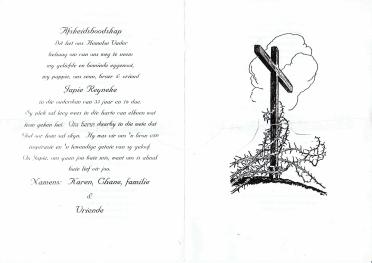 Afskeidsboodskap
Dit het ons Hemelse Vader
behaag om van ons weg te neem
my geliefde en beminde eggenoot,
my pappie, ons seun, broer & vriend
Japie Reyneke
in die ouderdom van 33 jaar en 14 dae.
Sy plek sal leeg wees in die harte van elkeen wat
hom geken het. Ons berus daarby in die wete dat
God oor hom sal skyn. Hy was vir ons 'n bron van
inspirasie en 'n lewendige getuie van sy geloof.
Ou Japie, ons gaan jou baie mis, want ons is almal
baie lief vir jou.
Namens: Karen, Chane, familie
&
Vriende